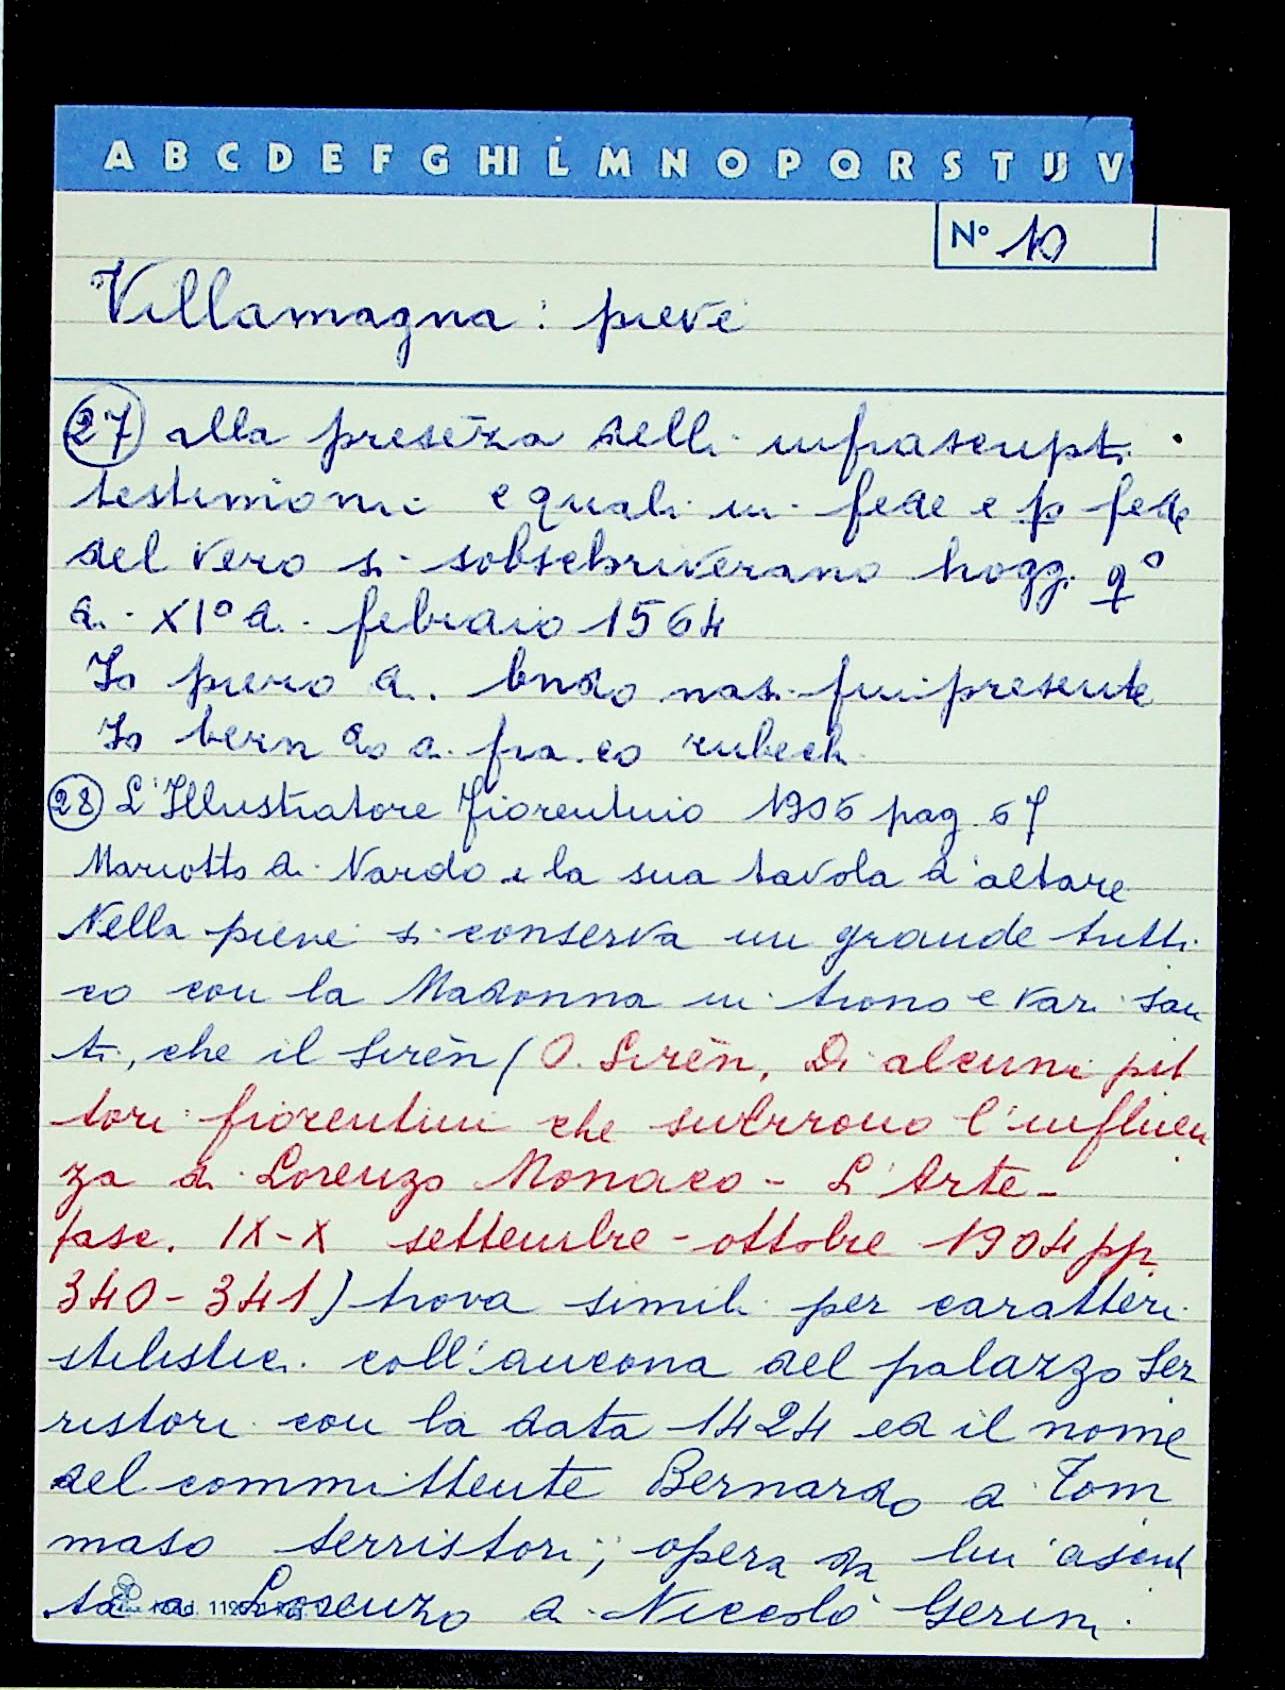 A B C D E F G HI L M N O P Q R S T U V
N° 10
Villamagna: pieve
27 alla presēza delli infrascripti
testimoni e quali in fede e p fede
del vero si sobschriverano hoggi qo
di XI° di febraio 1564
Io piero di bndo nasi fui presente
Io bern do di fra.co rubech
28 L'Illustratore fiorentino 1906 pag. 67
Mariotto di Nardo e la sua tavola d'altare
Nella pieve si conserva un grande tritti
co con la Madonna in trono e vari san
ti, che il Sirèn (O. Sirèn, Di alcuni pit
tori fiorentini che subirono l'influen
za di Lorenzo Monaco - L'Arte -
fasc. IX-X settembre - ottobre 1904 pp.
340-341) trova simili per caratteri
stilistici coll'ancona del palazzo Ser
ristori con la data 1424 ed il nome
del committente Bernardo di Tom
maso Serristori; opera da lui ascrit
ta a Lorenzo di Niccolò Gerini.